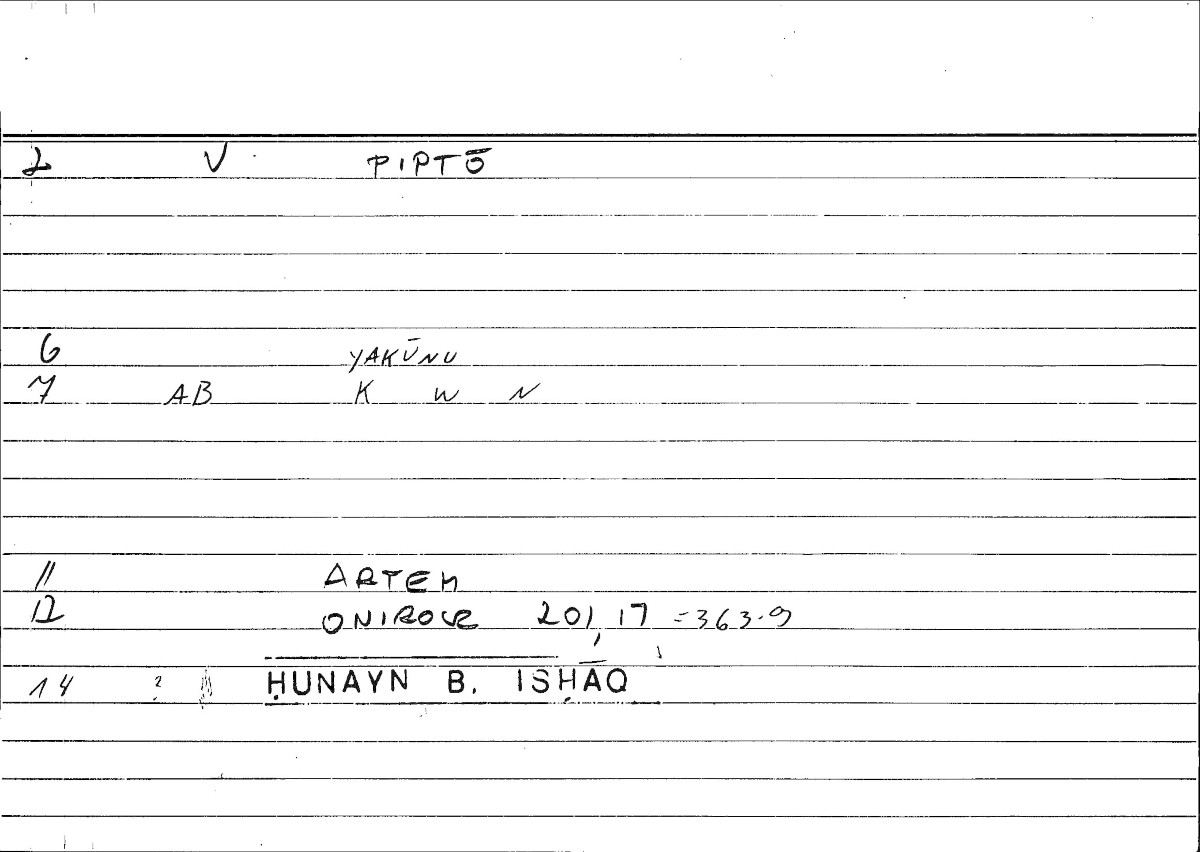 2 V PIPTŌ
6 YAKŪNU
7 AB K W N
11 ARTEM
12 ONIROCR 201,17 =363.9
14 ? ḤUNAYN B. ISḤĀQ